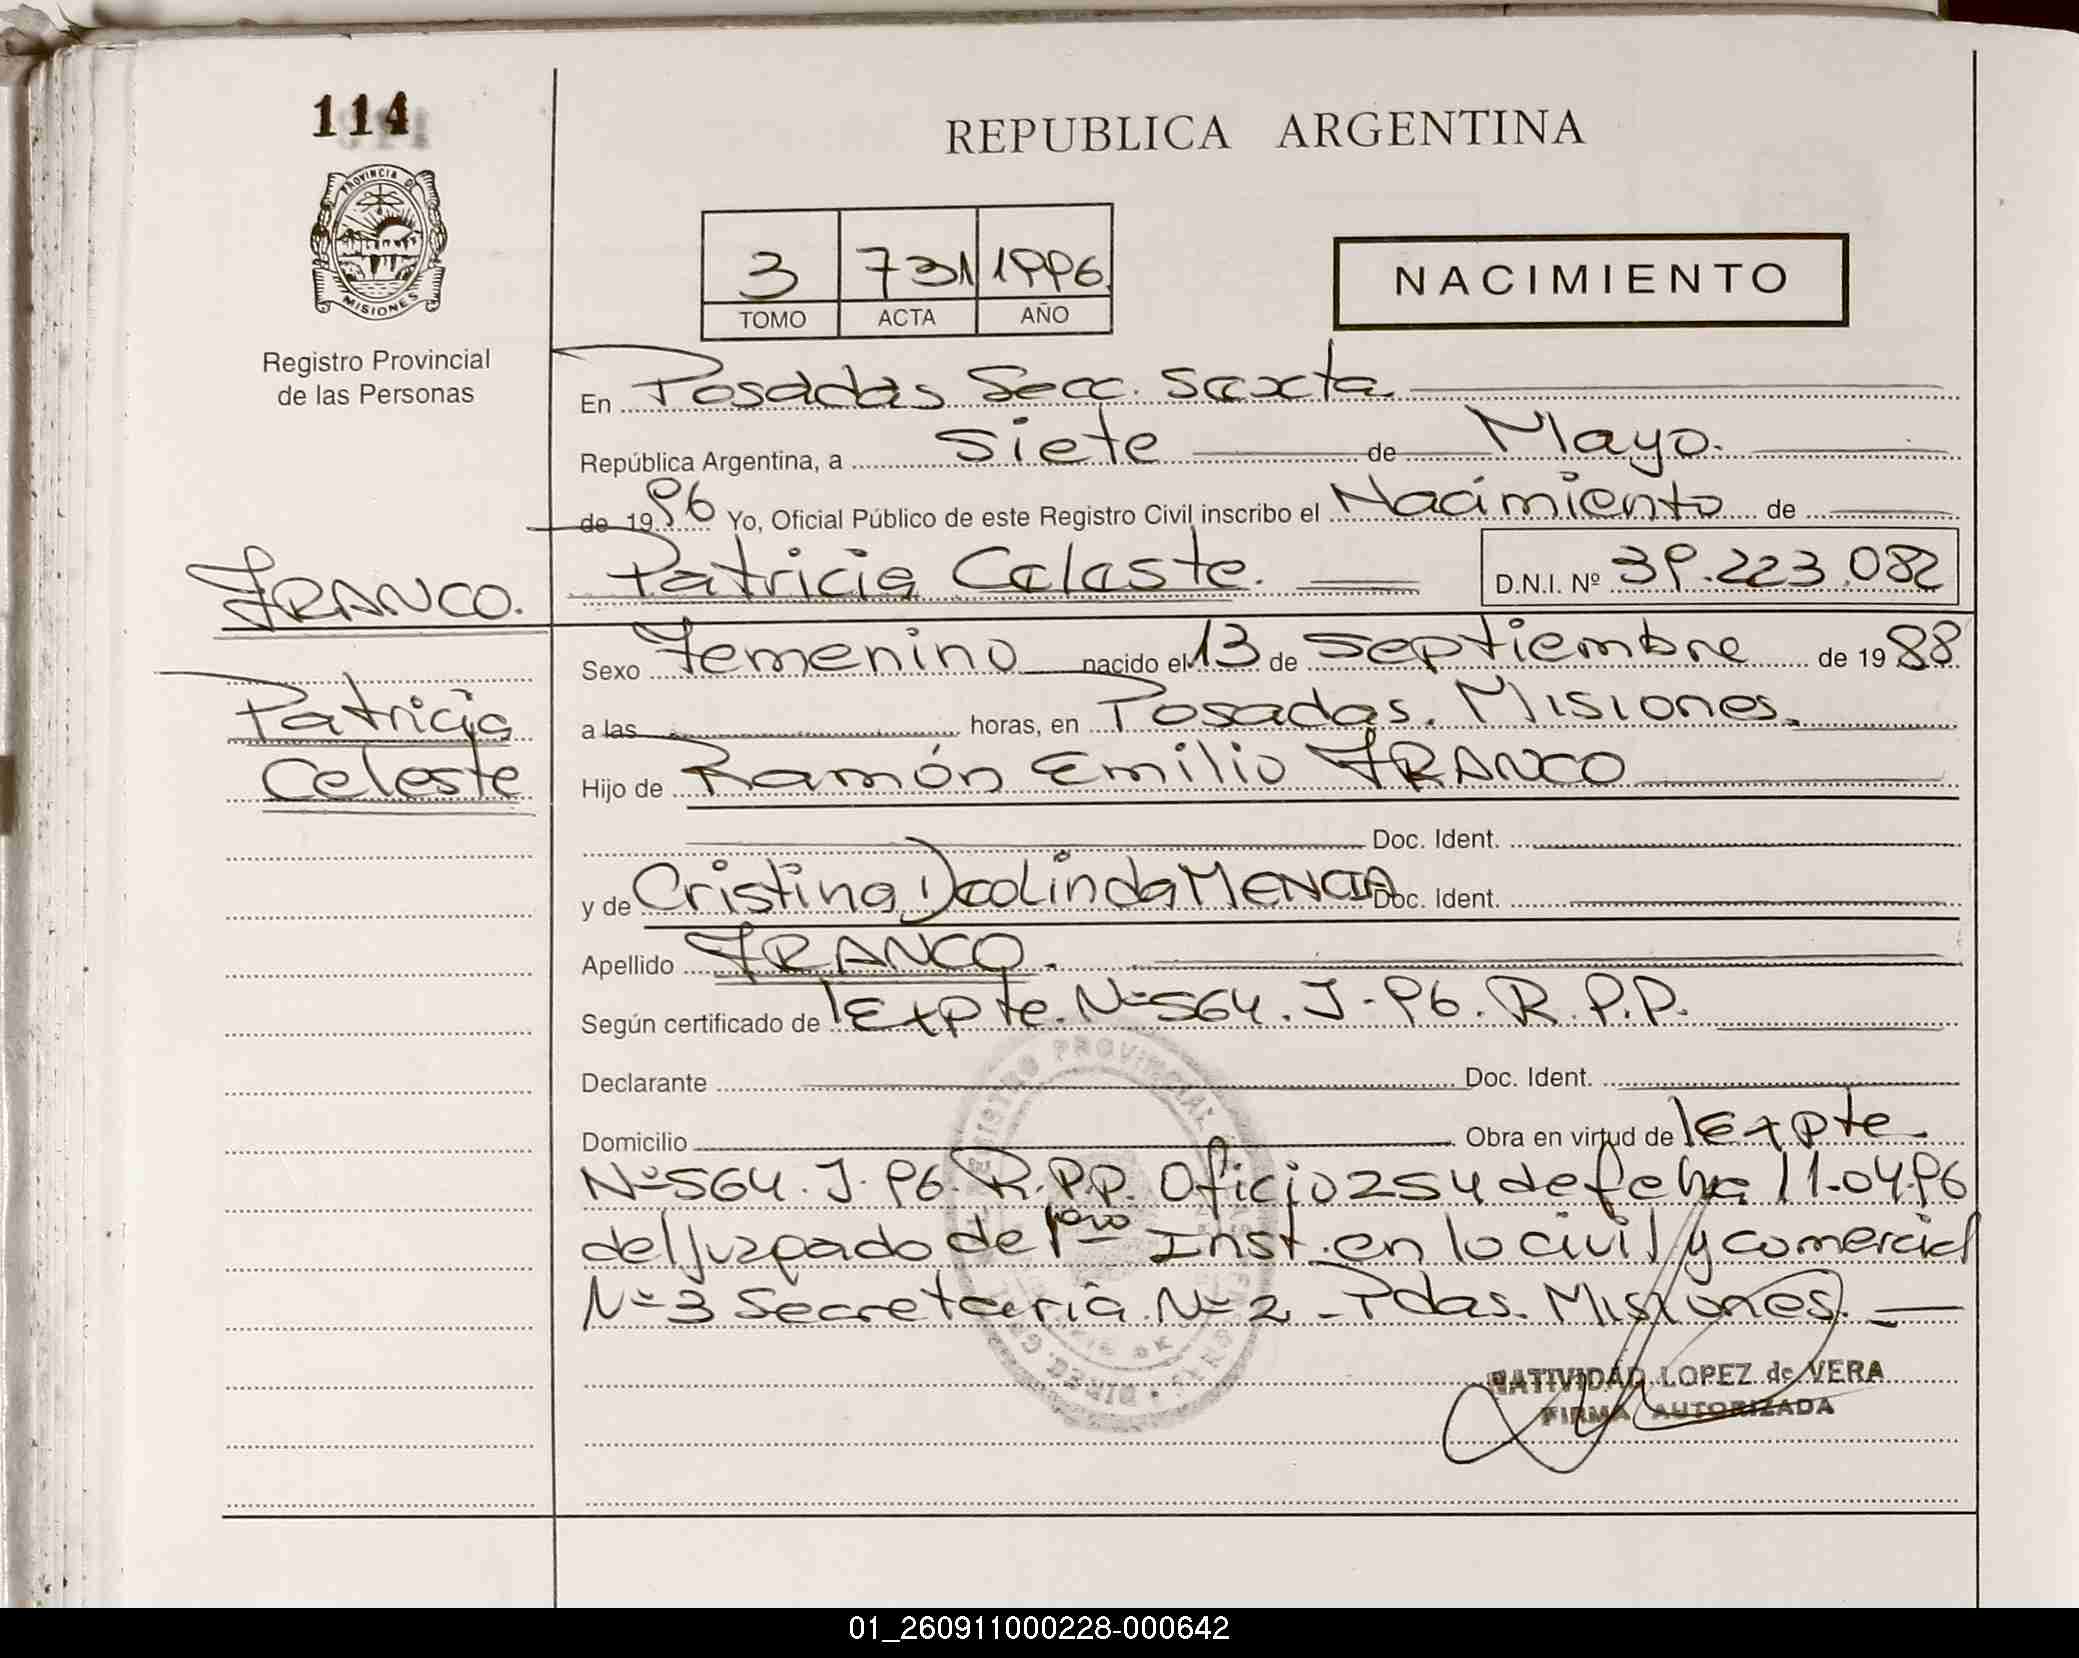 114
REPUBLICA ARGENTINA
PROVINCIA DE
MISIONES
Registro Provincial
de las Personas
3 731 1996
TOMO ACTA AÑO
NACIMIENTO
En Posadas Secc. Sexta
República Argentina, a siete de Mayo.
de 1996 Yo, Oficial Público de este Registro Civil inscribo el Nacimiento de
FRANCO. Patricia Celeste. D.N.I. Nº 39.223.082
Sexo Femenino nacido el 13 de septiembre de 1988
Patricia
Celeste
a las horas, en Posadas. Misiones.
Hijo de Ramón Emilio FRANCO
Doc. Ident.
y de Cristina Deolinda MENCIA Doc. Ident.
Apellido FRANCO.
Según certificado de Expte. Nº 564. J-96. R.P.P.
Declarante Doc. Ident.
Domicilio Obra en virtud de Expte
Nº 564. J. 96. R.P.P. Oficio 254 de fecha 11-04-96
del Juzgado de 1ero Inst. en lo civil y comercial
Nº 3 Secretaria Nº 2 - Pdas. Misiones.
REGISTRO PROVINCIAL
NATIVIDAD LOPEZ de VERA
FIRMA AUTORIZADA
01_260911000228-000642